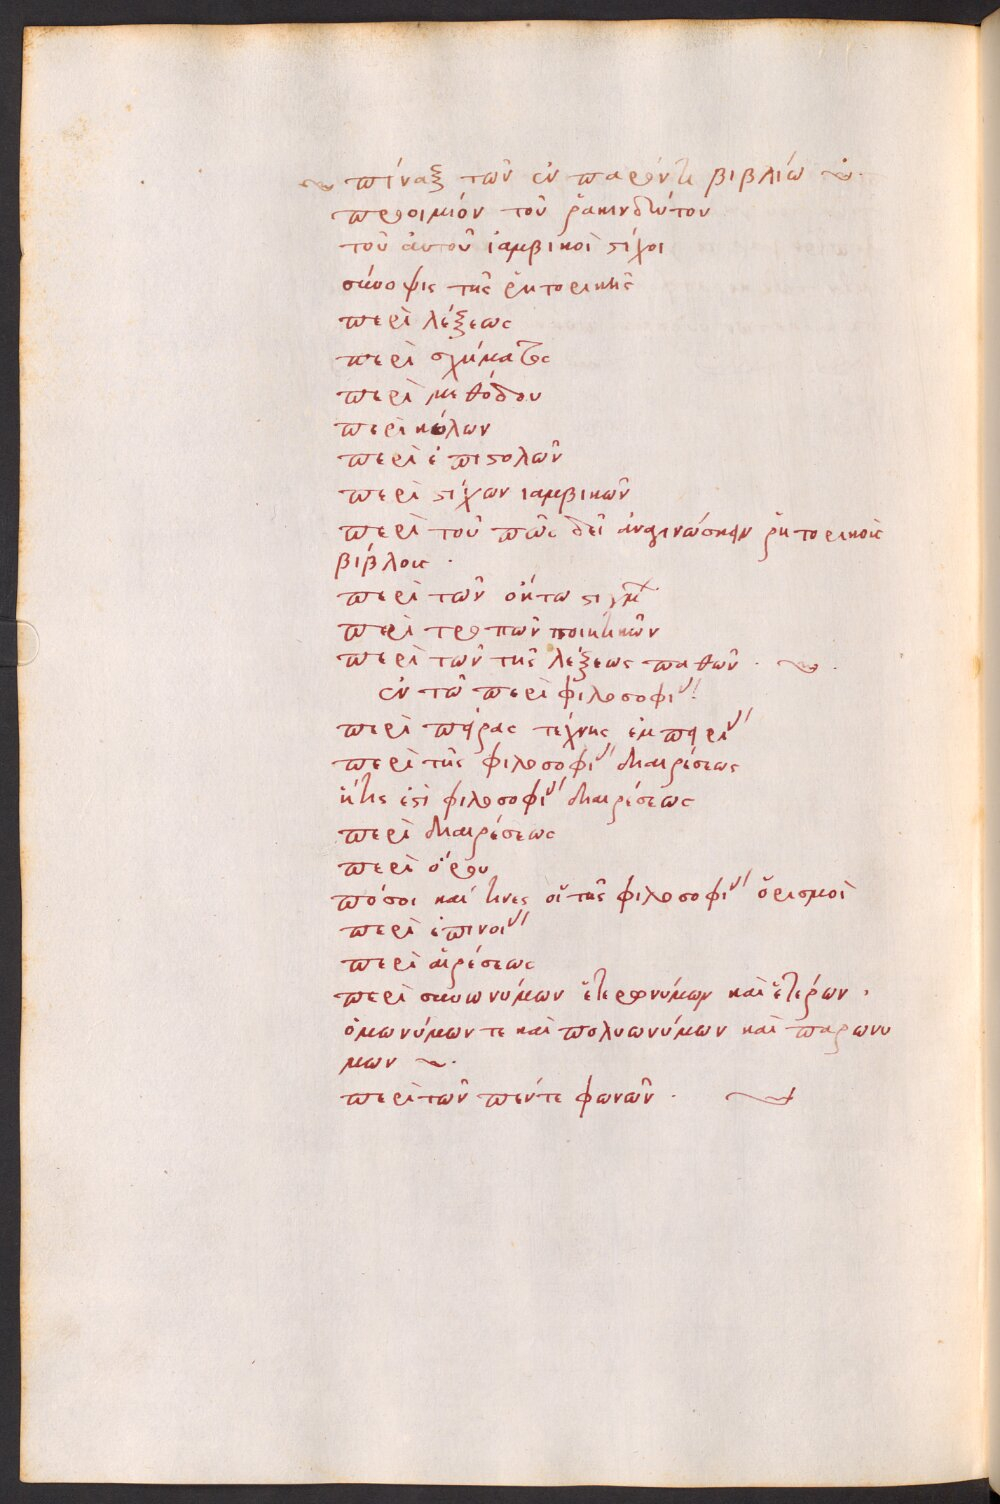 πίναξ τῶν ἐν παρόντι βιβλίω
προοιμιόν τοῦ ῥακινδύτου
τοῦ αὐτοῦ ἰαμβικοὶ στίχοι
σύνοψις τῆς ῥητορικῆς
περὶ λέξεως
περὶ σχήματος
περὶ μεθόδου
περὶ κόλων
περὶ ἐπιστολῶν
περὶ στίχων ιαμβικῶν
περὶ τοῦ πῶς δεῖ ἀναγινώσκειν ῥητορικοῖς
βίβλοις .
περὶ τῶν ὀκτω
περὶ τροπῶν ποιητικῶν
περὶ τῶν τῆς λέξεως παθῶν .
ἐν τῶ περὶ φιλοσοφίας
περὶ πείρας τέχνης ἐμπειρίας
περὶ τῆς φιλοσοφίας διαιρέσεως
ἥτις ἐστὶ φιλοσοφίας διαιρέσεως
περὶ διαιρέσεως
περὶ ὅρου
πόσοι καί τινες οἵ τῆς φιλοσοφίας ὅρισμοὶ
περὶ ἐπινοίας
περὶ αἱρέσεως
περὶ συνωνύμων ἑτερονύμων καὶ ἑτέρων .
ὁμωνύμων τε καὶ πολυωνύμων καὶ παρωνυ
μων
περὶ τῶν πέντε φωνῶν .